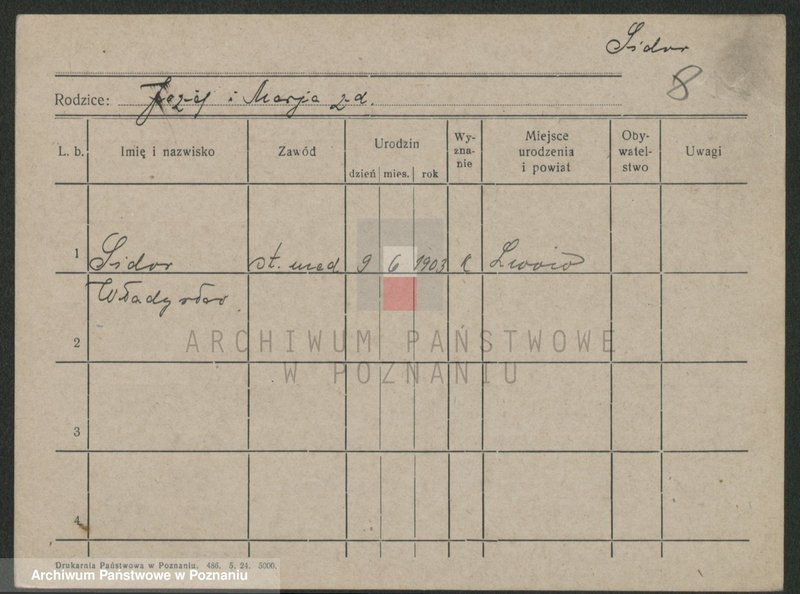 Sidor
8
Rodzice: Józef i Marja z d.
L. b. Imię i nazwisko Zawód Urodzin dzień mies. rok Wy-zna-nie Miejsce urodzenia i powiat Oby-watel-stwo Uwagi
1 Sidor st. med 9 6 1903 R Lwów
Władysław.
2
ARCHIWUM PAŃSTWOWE
W POZNANIU
3
4
Drukarnia Państwowa w Poznaniu. 486. 5. 24. 5000.
Archiwum Państwowe w Poznaniu